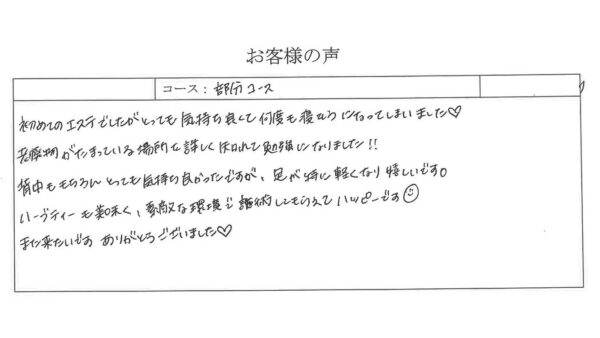 お客様の声
コース：部分コース
初めてのエステでしたがとっても気持ち良くて何度も寝そうになってしまいました♡
老廃物がたまっている場所も詳しく知れて勉強になりました!!
背中ももちろんとっても気持ち良かったですが、足が特に軽くなり嬉しいです。
ハーブティーも美味く、素敵な環境で施術してもらえてハッピーです☺
また来たいです ありがとうございました♡